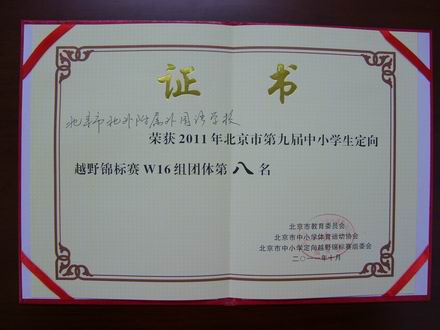 证书
北京市北外附属外国语学校
荣获2011年北京市第九届中小学生定向
越野锦标赛W16组团体第八名
北京市教育委员会
北京市中小学体育运动协会
北京市中小学定向越野锦标赛组委会
二〇一一年十月